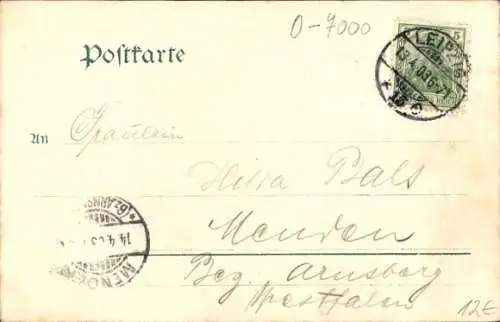 O-7000
Postkarte
5
LEIPZIG
13.4.03 6-7
An Fräulein
Bals
Menden
Bez. Arnsberg
Westfalen
14.4.03
MENDEN
12€